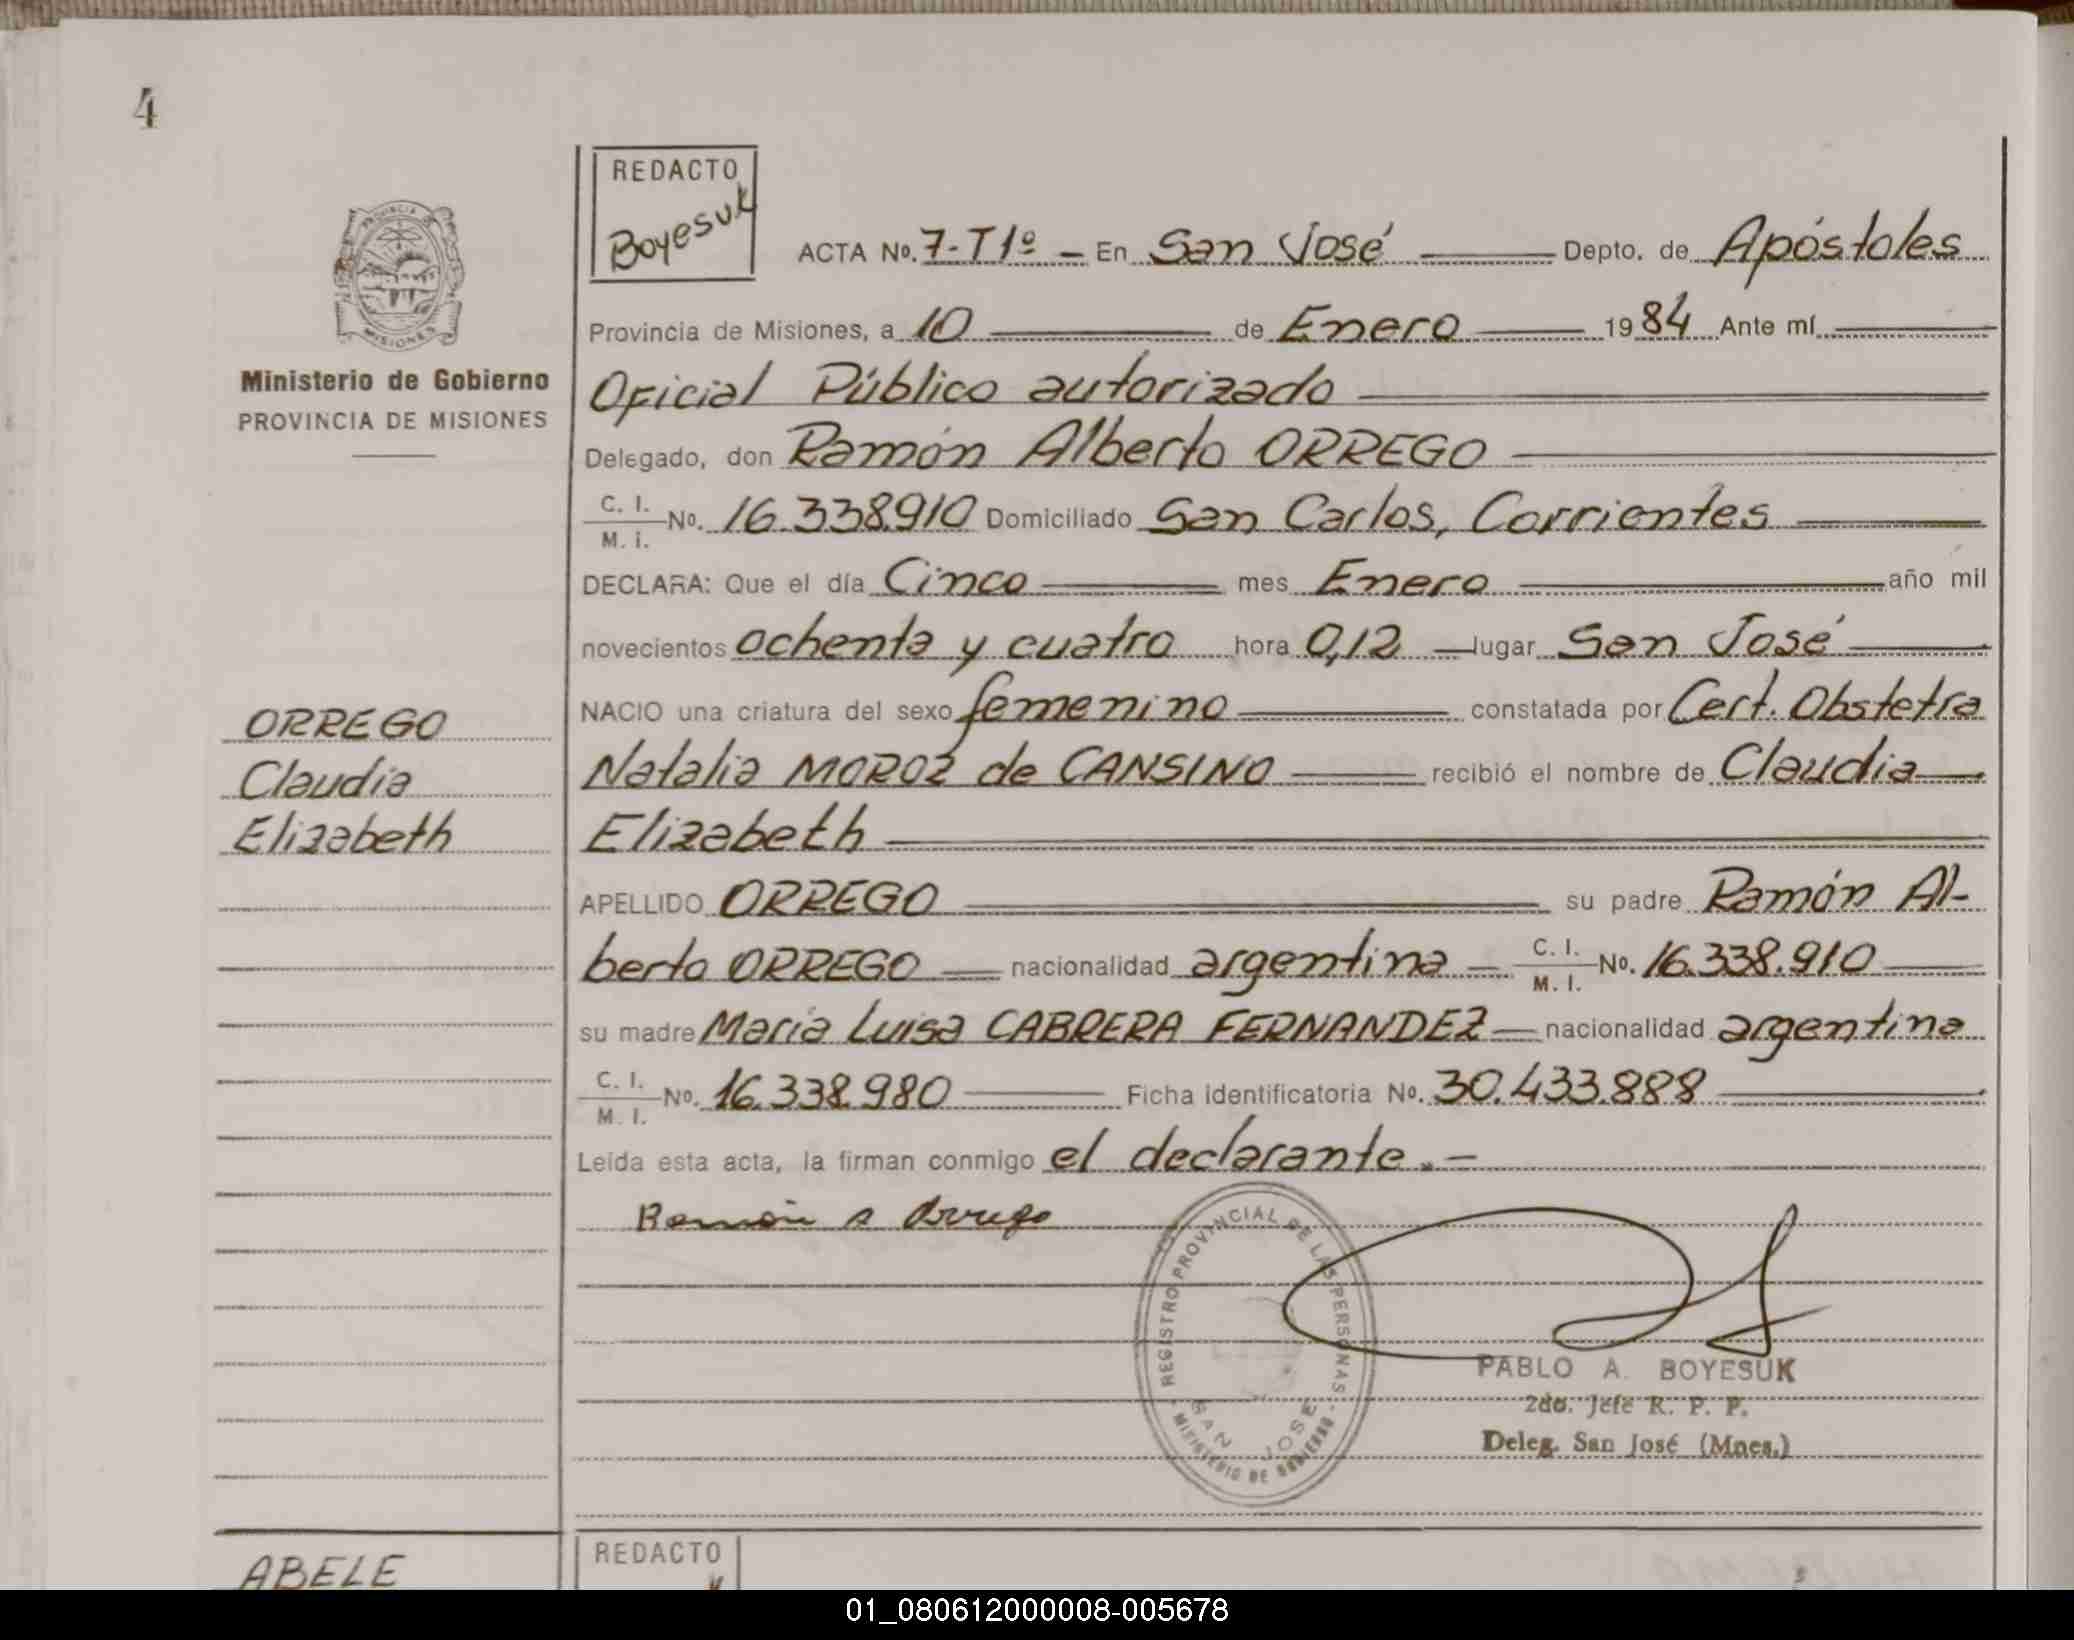 4
REDACTO
Boyesuk
ACTA No. 7-T1º - En San José Depto. de Apóstoles
PROVINCIA DE MISIONES
Ministerio de Gobierno
PROVINCIA DE MISIONES
Provincia de Misiones, a 10 de Enero 1984 Ante mí
Oficial Público autorizado
Delegado, don Ramón Alberto ORREGO
C. I. M. I. No. 16.338.910 Domiciliado San Carlos, Corrientes
DECLARA: Que el día Cinco mes Enero año mil
novecientos ochenta y cuatro hora 0,12 lugar San José
NACIO una criatura del sexo femenino constatada por Cert. Obstetra
Natalia MOROZ de CANSINO recibió el nombre de Claudia
Elizabeth
ORREGO
Claudia
Elizabeth
APELLIDO ORREGO su padre Ramón Al-
berto ORREGO nacionalidad argentina C. I. M. I. No. 16.338.910
su madre María Luisa CABRERA FERNANDEZ nacionalidad argentina
C. I. M. I. No. 16.338.980 Ficha identificatoria No. 30.433.888
Leída esta acta, la firman conmigo el declarante.-
Ramón A Orrego
REGISTRO PROVINCIAL DE LAS PERSONAS
SAN JOSE
MINISTERIO DE GOBIERNO
PABLO A. BOYESUK
2do. Jefe R. P. P.
Deleg. San José (Mnes.)
ABELE
REDACTO
01_080612000008-005678